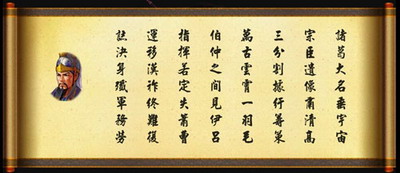 諸葛大名垂宇宙
宗臣遺像肅清高
三分割據紆籌策
萬古雲霄一羽毛
伯仲之間見伊呂
指揮若定失蕭曹
運移漢祚終難復
誌決身殲軍務勞